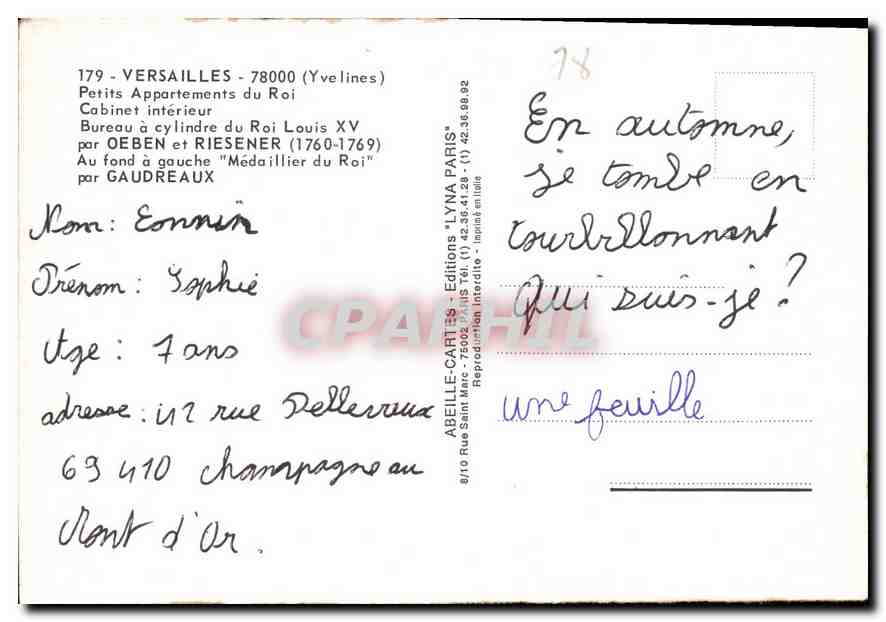 179 - VERSAILLES - 78000 (Yvelines)
Petits Appartements du Roi
Cabinet intérieur
Bureau à cylindre du Roi Louis XV
par OEBEN et RIESENER (1760-1769)
Au fond à gauche "Médaillier du Roi"
par GAUDREAUX
Nom: Eonnin
Prénom: Sophie
Age: 7 ans
adresse: 42 rue Dellevaux
69 410 Champagne au
Mont d'Or.
ABEILLE-CARTES - Editions "LYNA PARIS"
8/10 Rue Saint Marc - 75002 PARIS Tél. (1) 42.36.41.28 - (1) 42.36.98.92
Reproduction Interdite - Imprimé en Italie
78
En automne,
je tombe en
tourbillonnant
Qui suis-je?
une feuille
CPAPHIL